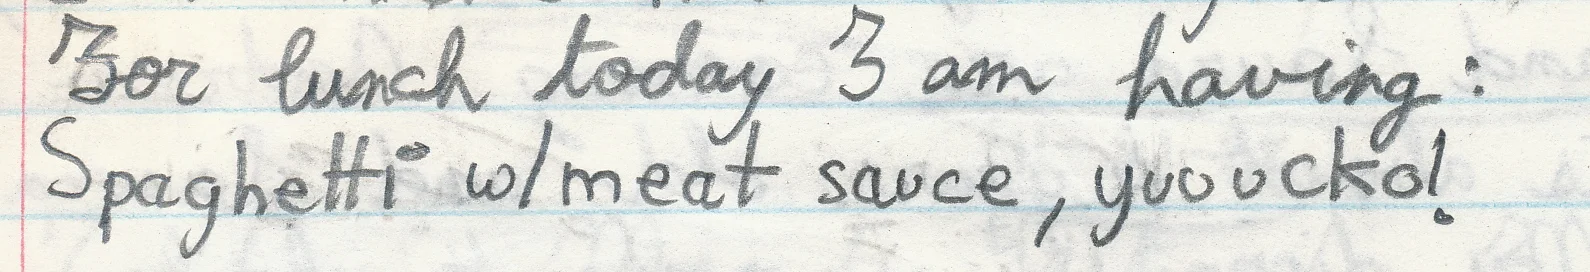 For lunch today I am having:
Spaghetti w/meat sauce, yuuucko!